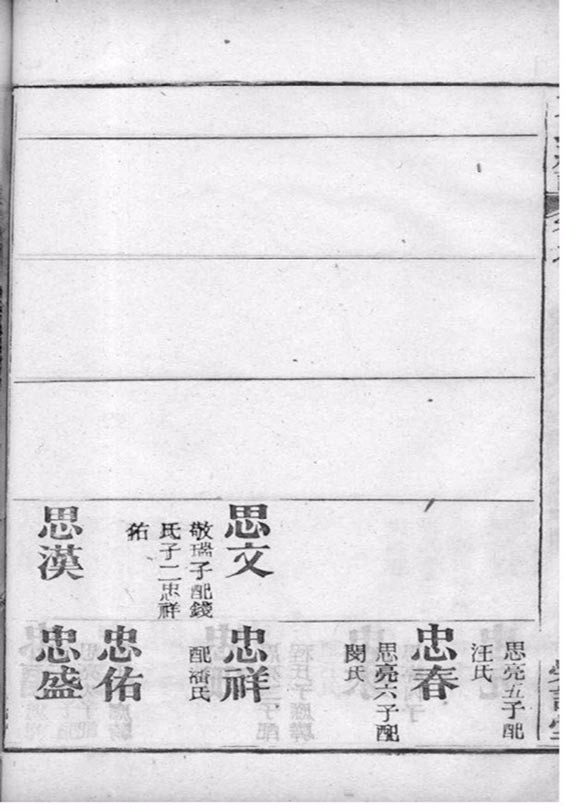 思亮五子配
汪氏
忠春
思亮六子配
閔氏
思文
敬瑞子配錢
氏子二忠祥
佑
忠祥
配潘氏
忠佑
思漢
忠盛